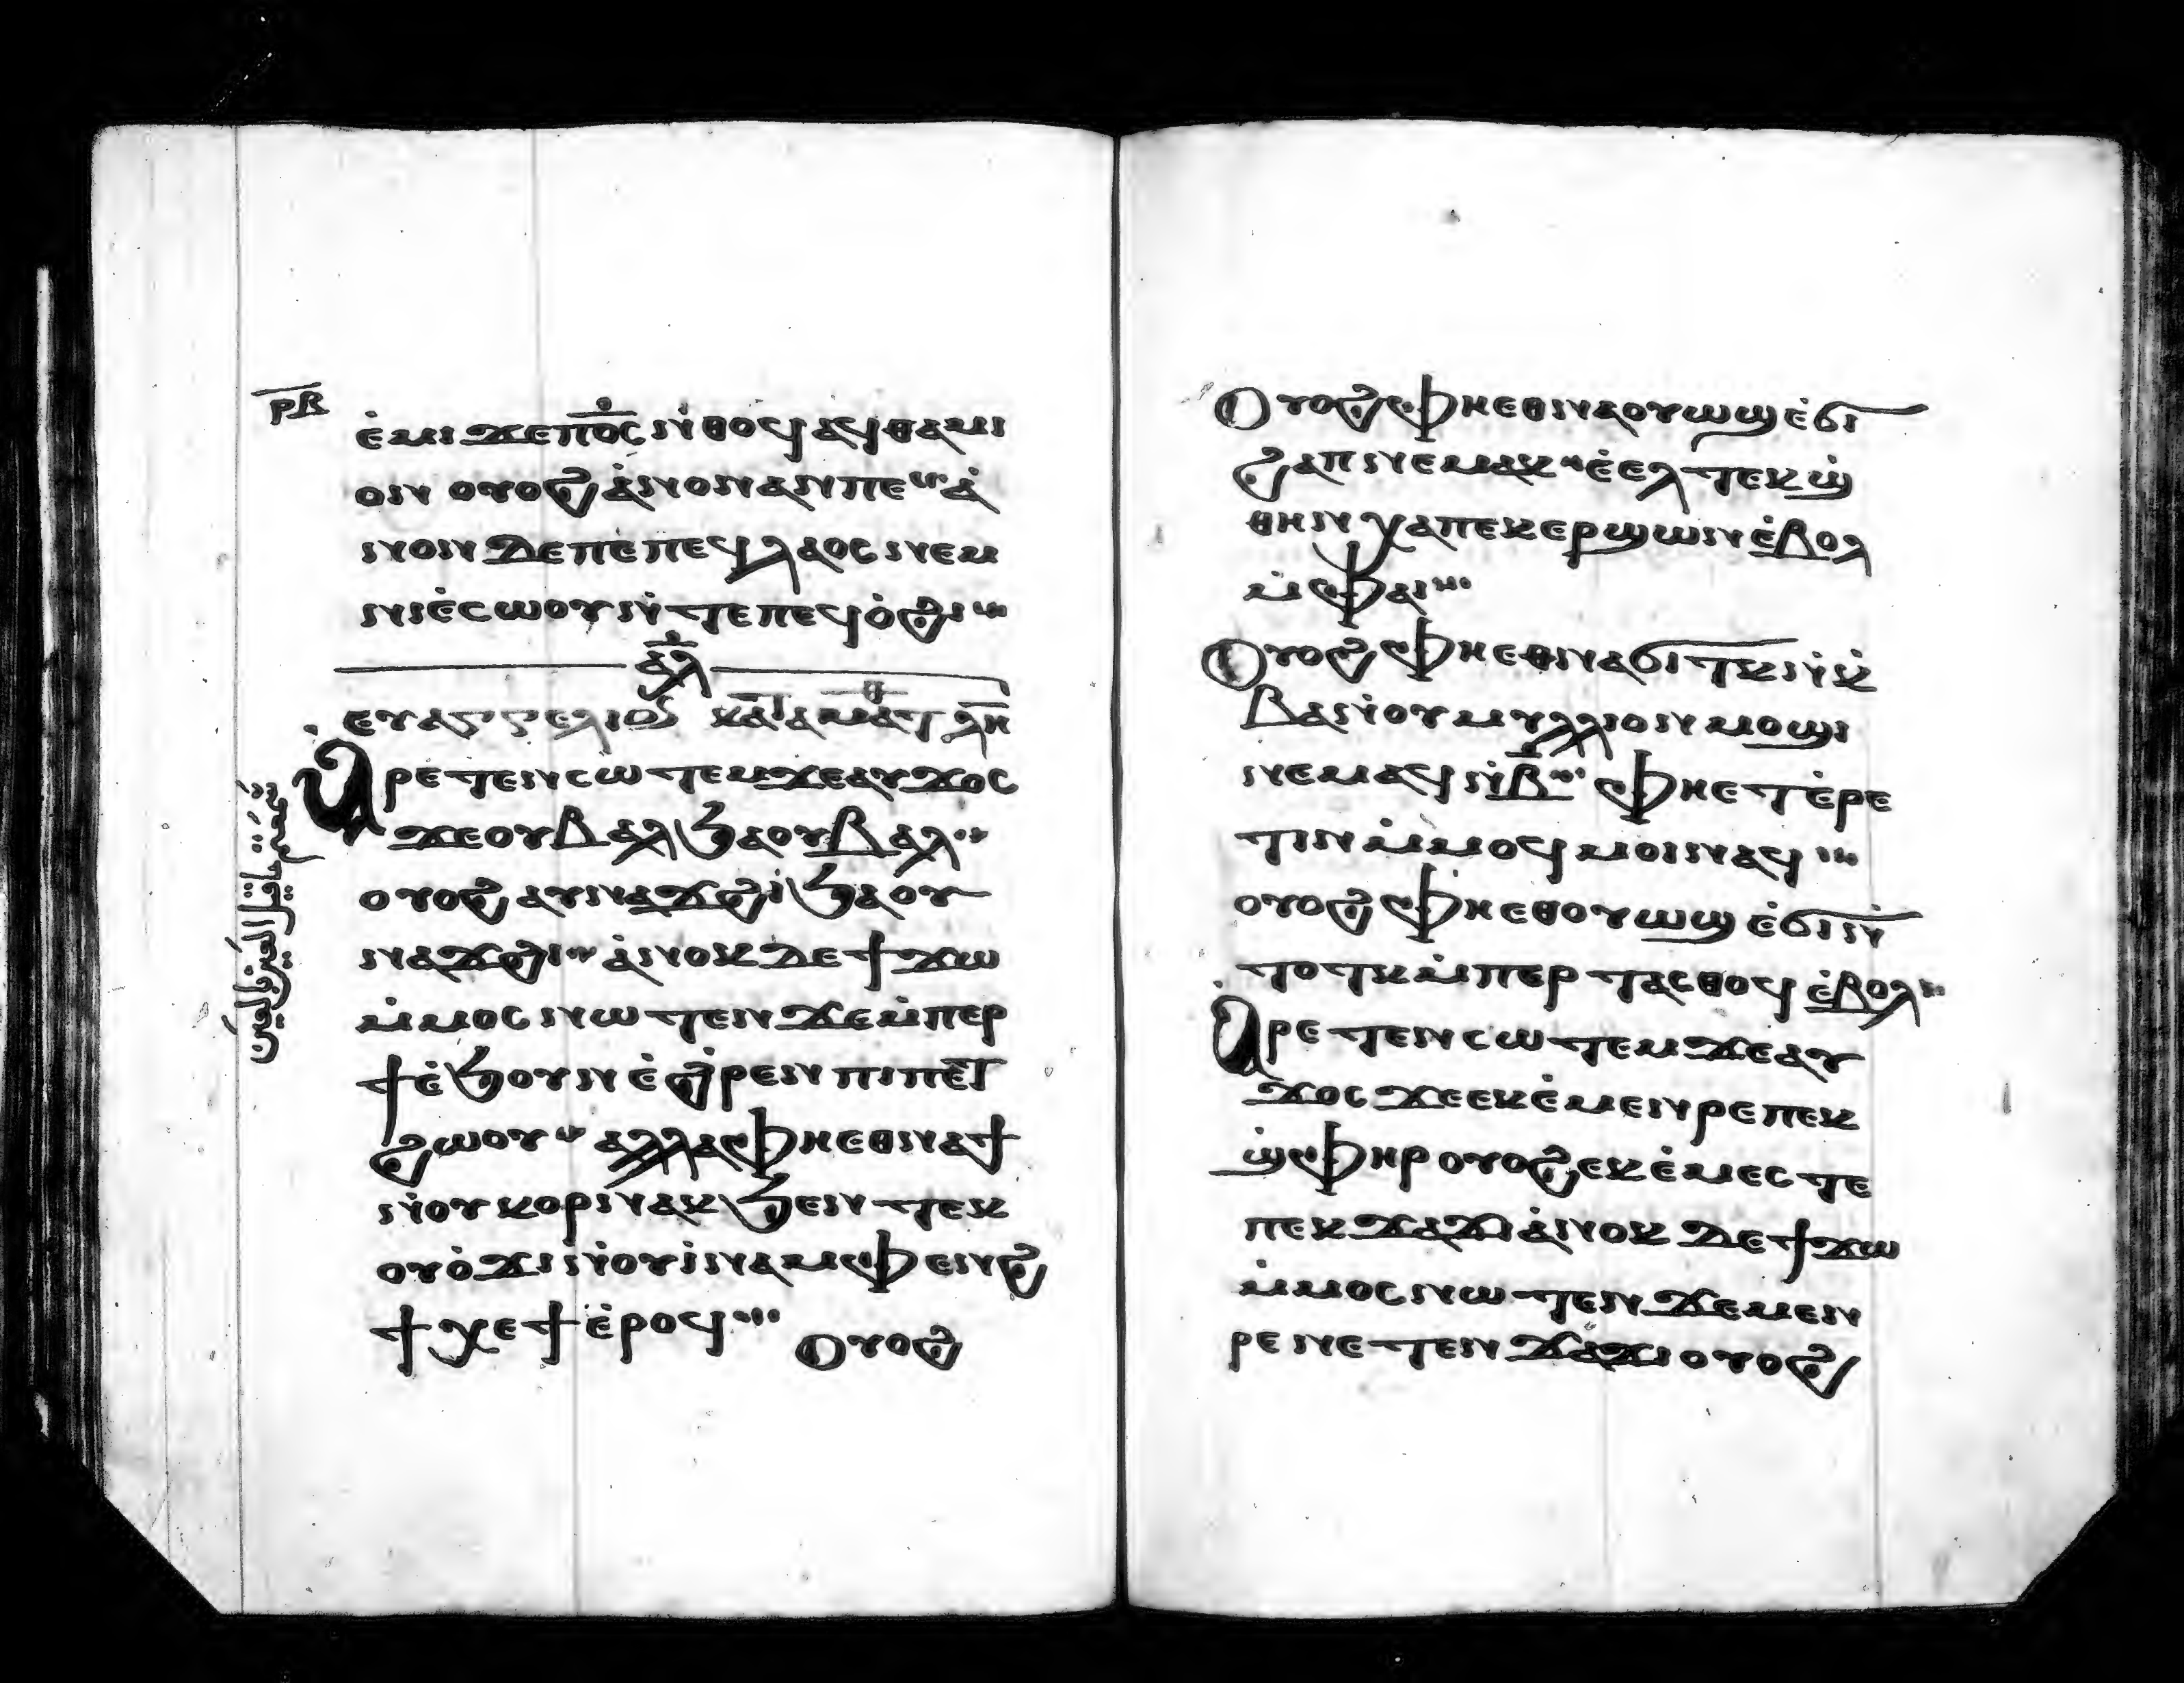 ⲣ̅ⲕ̅
ⲉ̀ⲙⲓ ϫⲉ ⲡⲟ̅ⲥ̅ ⲛ̀ⲑⲟϥ ⲁϥⲑⲁⲙⲓ
ⲟⲛ ⲟⲩⲟϩ ⲁ̀ⲛⲟⲛ ⲁⲛ ⲡⲉ ⲁ̀
ⲛⲟⲛ ⲇⲉ ⲡⲉ ⲡⲉϥⲗⲁⲟⲥ ⲛⲉⲙ
ⲛⲓⲉ̀ⲥⲱⲟⲩ ⲛ̀ⲧⲉ ⲡⲉϥⲟ̀ϩⲓ
ⲁⲗ
ⲉⲩⲁⲅⲅⲉⲗⲓⲟⲛ ⲕⲁⲧⲁ ⲙⲁⲧⲑ ⲗⲏ
ⲁ̀ⲣⲉⲧⲉⲛⲥⲱⲧⲉⲙ ϫⲉ ⲁⲩϫⲟⲥ
ϫⲉ ⲟⲩⲃⲁⲗ ϧⲁ ⲟⲩⲃⲁⲗ
ⲟⲩⲟϩ ⲁⲩⲛⲁϫϩⲓ ϧⲁ ⲟⲩ
ⲛⲁϫϩⲓ ⲁ̀ⲛⲟⲕ ⲇⲉ ϯϫⲱ
ⲙ̀ⲙⲟⲥ ⲛⲱⲧⲉⲛ ϫⲉ ⲙ̀ⲡⲉⲣ
ϯ ⲉ̀ϧⲟⲩⲛ ⲉ̀ϩ̀ⲣⲉⲛ ⲡⲓⲡⲉⲧ
ϩⲱⲟⲩ ⲁⲗⲗⲁ ⲫⲏⲉⲑⲛⲁϯ
ⲛ̀ⲟⲩⲕⲟⲣ ⲛⲁⲕ ϧⲉⲛ ⲧⲉⲕ
ⲟⲩⲟ̀ϫⲓ ⲛ̀ⲟⲩⲓ̀ⲛⲁⲙ ⲫⲉⲛϩ
ϯⲭⲉϯ ⲉ̀ⲣⲟϥ
ⲟⲩⲟϩ
ⲟⲩⲟϩ ⲫⲏⲉⲑⲛⲁⲟⲩⲱϣ ⲉ̀ϭⲓ
ϩⲁⲡ ⲛⲉⲙⲁⲕ ⲉ̀ⲉⲗ ⲧⲉⲕϣ̀
ⲑⲏⲛ ⲭⲁ ⲡⲉⲕⲉⲣϣⲱⲛ ⲉ̀ⲃⲟⲗ
ⲙ̀ⲫⲁⲓ
ⲟⲩⲟϩ ⲫⲏⲉⲑⲛⲁϭⲓⲧⲕ ⲛ̀ⲕ̀
ⲃⲁ ⲛ̀ⲟⲩⲙⲩⲗⲗⲓⲟⲛ ⲙⲟϣⲓ
ⲛⲉⲙⲁϥ ⲛ̀ⲃ̅ ⲫⲏⲉⲧⲉ̀ⲣⲉ
ⲧⲓⲛ ⲙ̀ⲙⲟϥ ⲙⲟⲓ ⲛⲁϥ
ⲟⲩⲟϩ ⲫⲏⲉⲑⲟⲩⲱϣ ⲉ̀ϭⲓ ⲛ̀
ⲧⲟⲧⲕ ⲙ̀ⲡⲉⲣⲧⲁⲥⲑⲟϥ ⲉ̀ⲃⲟⲗ
ⲁ̀ⲣⲉⲧⲉⲛⲥⲱⲧⲉⲙ ϫⲉ ⲁⲩ
ϫⲟⲥ ϫⲉ ⲉⲕⲉ̀ⲙⲉⲛⲣⲉ ⲡⲉⲕ
ϣ̀ⲫⲏⲣ ⲟⲩⲟϩ ⲉⲕⲉ̀ⲙⲉⲥⲧⲉ
ⲡⲉⲕϫⲁϫⲓ ⲁ̀ⲛⲟⲕ ⲇⲉ ϯϫⲱ
ⲙ̀ⲙⲟⲥ ⲛⲱⲧⲉⲛ ϫⲉ ⲙⲉⲛ
ⲣⲉ ⲛⲉⲧⲉⲛϫⲁϫⲓ ⲟⲩⲟϩ